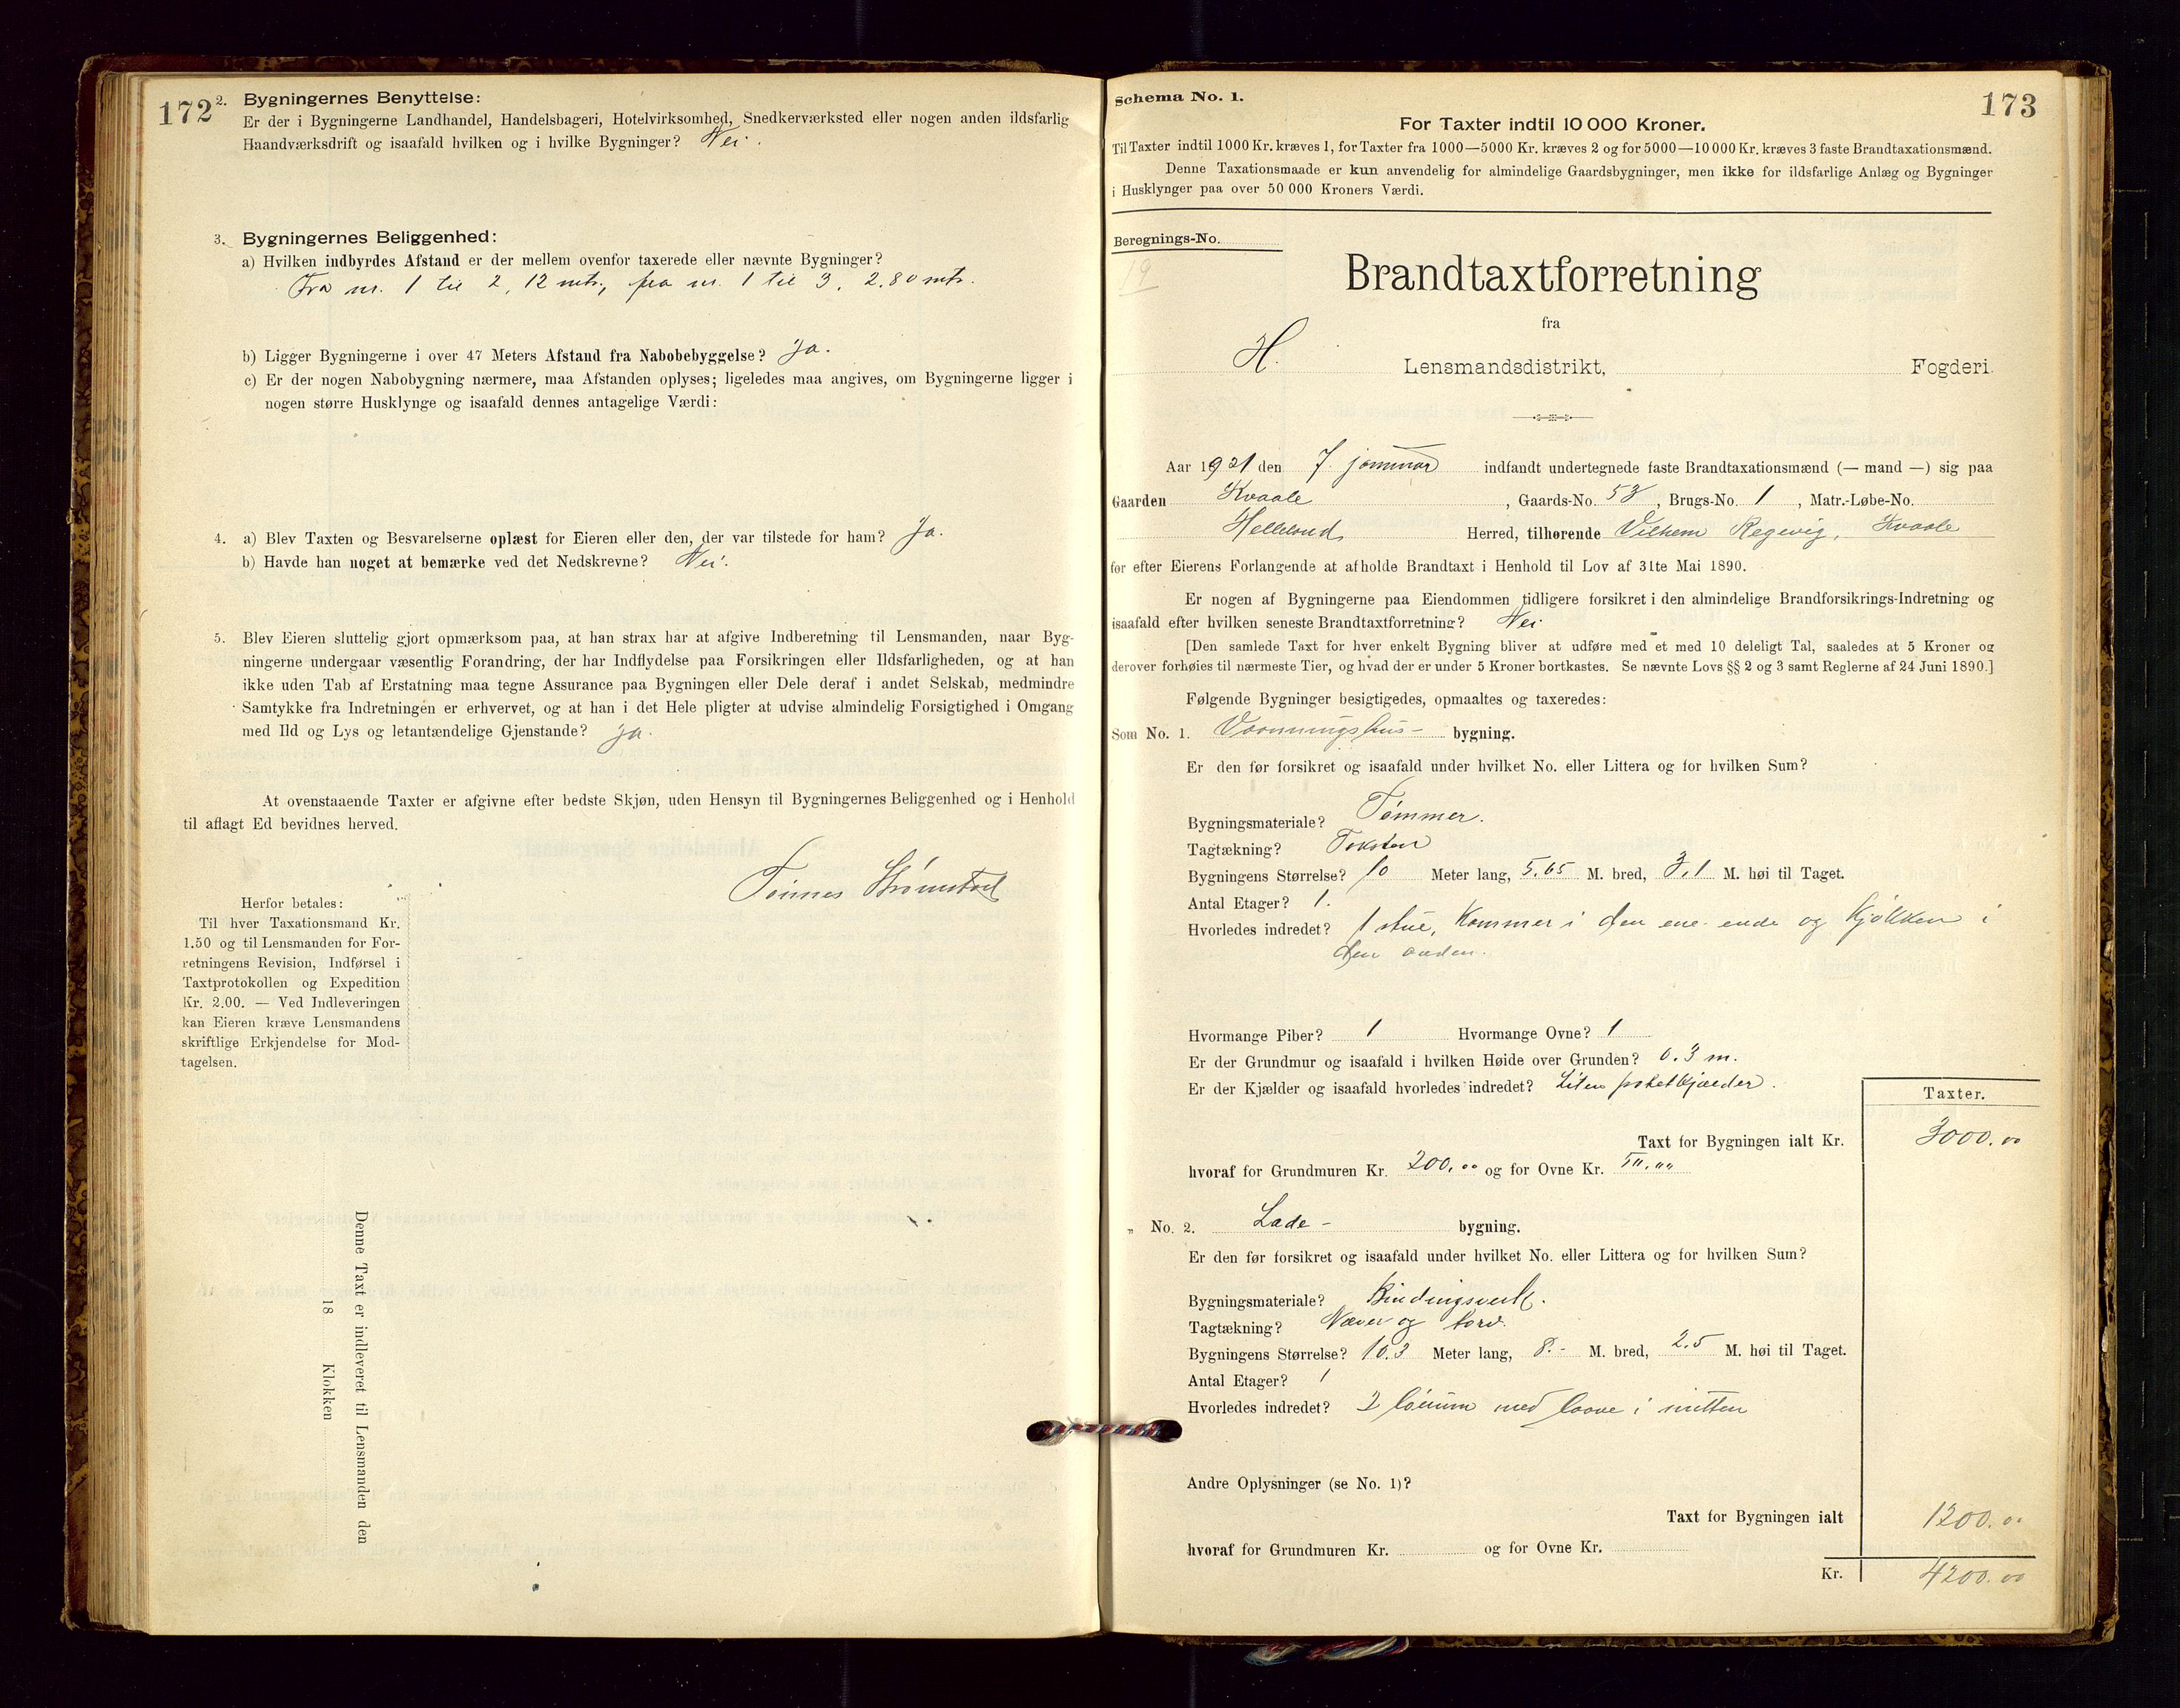 172
2. Bygningernes Benyttelse:
Er der i Bygningerne Landhandel, Handelsbageri, Hotelvirksomhed, Snedkerværksted eller nogen anden ildsfarlig
Haandværksdrift og isaafald hvilken og i hvilke Bygninger? Nei.
3. Bygningernes Beliggenhed:
a) Hvilken indbyrdes Afstand er der mellem ovenfor taxerede eller nævnte Bygninger?
Fra nr. 1 til 2, 12 mtr., fra nr. 1 til 3, 2,80 mtr.
b) Ligger Bygningerne i over 47 Meters Afstand fra Nabobebyggelse? Ja.
c) Er der nogen Nabobygning nærmere, maa Afstanden oplyses; ligeledes maa angives, om Bygningerne ligger i
nogen større Husklynge og isaafald dennes antagelige Værdi:
4. a) Blev Taxten og Besvarelserne oplæst for Eieren eller den, der var tilstede for ham? Ja.
b) Havde han noget at bemærke ved det Nedskrevne? Nei.
5. Blev Eieren sluttelig gjort opmærksom paa, at han strax har at afgive Indberetning til Lensmanden, naar Byg-
ningerne undergaar væsentlig Forandring, der har Indflydelse paa Forsikringen eller Ildsfarligheden, og at han
ikke uden Tab af Erstatning maa tegne Assurance paa Bygningen eller Dele deraf i andet Selskab, medmindre
Samtykke fra Indretningen er erhvervet, og at han i det Hele pligter at udvise almindelig Forsigtighed i Omgang
med Ild og Lys og letantændelige Gjenstande? Ja.
At ovenstaaende Taxter er afgivne efter bedste Skjøn, uden Hensyn til Bygningernes Beliggenhed og i Henhold
til aflagt Ed bevidnes herved.
Tønnes Strømstad
Herfor betales:
Til hver Taxationsmand Kr.
1.50 og til Lensmanden for For-
retningens Revision, Indførsel i
Taxtprotokollen og Expedition
Kr. 2.00. — Ved Indleveringen
kan Eieren kræve Lensmandens
skriftlige Erkjendelse for Mod-
tagelsen.
Denne Taxt er indleveret til Lensmanden den
18 Klokken
173
Schema No. 1.
For Taxter indtil 10 000 Kroner.
Til Taxter indtil 1000 Kr. kræves 1, for Taxter fra 1000—5000 Kr. kræves 2 og for 5000—10 000 Kr. kræves 3 faste Brandtaxationsmænd.
Denne Taxationsmaade er kun anvendelig for almindelige Gaardsbygninger, men ikke for ildsfarlige Anlæg og Bygninger
i Husklynger paa over 50 000 Kroners Værdi.
Beregnings-No.
19
Brandtaxtforretning
fra
H. Lensmandsdistrikt, Fogderi.
Aar 1921 den 7. januar indfandt undertegnede faste Brandtaxationsmænd (— mand —) sig paa
Gaarden Kvaale, Gaards-No. 58, Brugs-No. 1, Matr.-Løbe-No.
Helleland Herred, tilhørende Vilhem Regevig, Kvaale
for efter Eierens Forlangende at afholde Brandtaxt i Henhold til Lov af 31te Mai 1890.
Er nogen af Bygningerne paa Eiendommen tidligere forsikret i den almindelige Brandforsikrings-Indretning og
isaafald efter hvilken seneste Brandtaxtforretning? Nei
[Den samlede Taxt for hver enkelt Bygning bliver at udføre med et med 10 deleligt Tal, saaledes at 5 Kroner og
derover forhøies til nærmeste Tier, og hvad der er under 5 Kroner bortkastes. Se nævnte Lovs §§ 2 og 3 samt Reglerne af 24 Juni 1890.]
Følgende Bygninger besigtigedes, opmaaltes og taxeredes:
Som No. 1. Vaaningshus- bygning.
Er den før forsikret og isaafald under hvilket No. eller Littera og for hvilken Sum?
Bygningsmateriale? Tømmer.
Tagtækning? Taksten
Bygningens Størrelse? 10 Meter lang, 5,65 M. bred, 3,1 M. høi til Taget.
Antal Etager? 1.
Hvorledes indredet? 1 stue, Kammer i den ene ende og Kjøkken i
den anden.
Hvormange Piber? 1 Hvormange Ovne? 1
Er der Grundmur og isaafald i hvilken Høide over Grunden? 0.3 m.
Er der Kjælder og isaafald hvorledes indredet? Liten potetkjælder.
Taxter.
Taxt for Bygningen ialt Kr. 3000.00
hvoraf for Grundmuren Kr. 200,00 og for Ovne Kr.
„ No. 2. Lade- bygning.
Er den før forsikret og isaafald under hvilket No. eller Littera og for hvilken Sum?
Bygningsmateriale? Bindingsverk.
Tagtækning? Næver og torv.
Bygningens Størrelse? 10.3 Meter lang, 8.- M. bred, 2.5 M. høi til Taget.
Antal Etager? 1
Hvorledes indredet? 2 løerum med laave i mitten
Andre Oplysninger (se No. 1)?
Taxt for Bygningen ialt 1200.00
hvoraf for Grundmuren Kr. og for Ovne Kr.
Kr. 4200.00